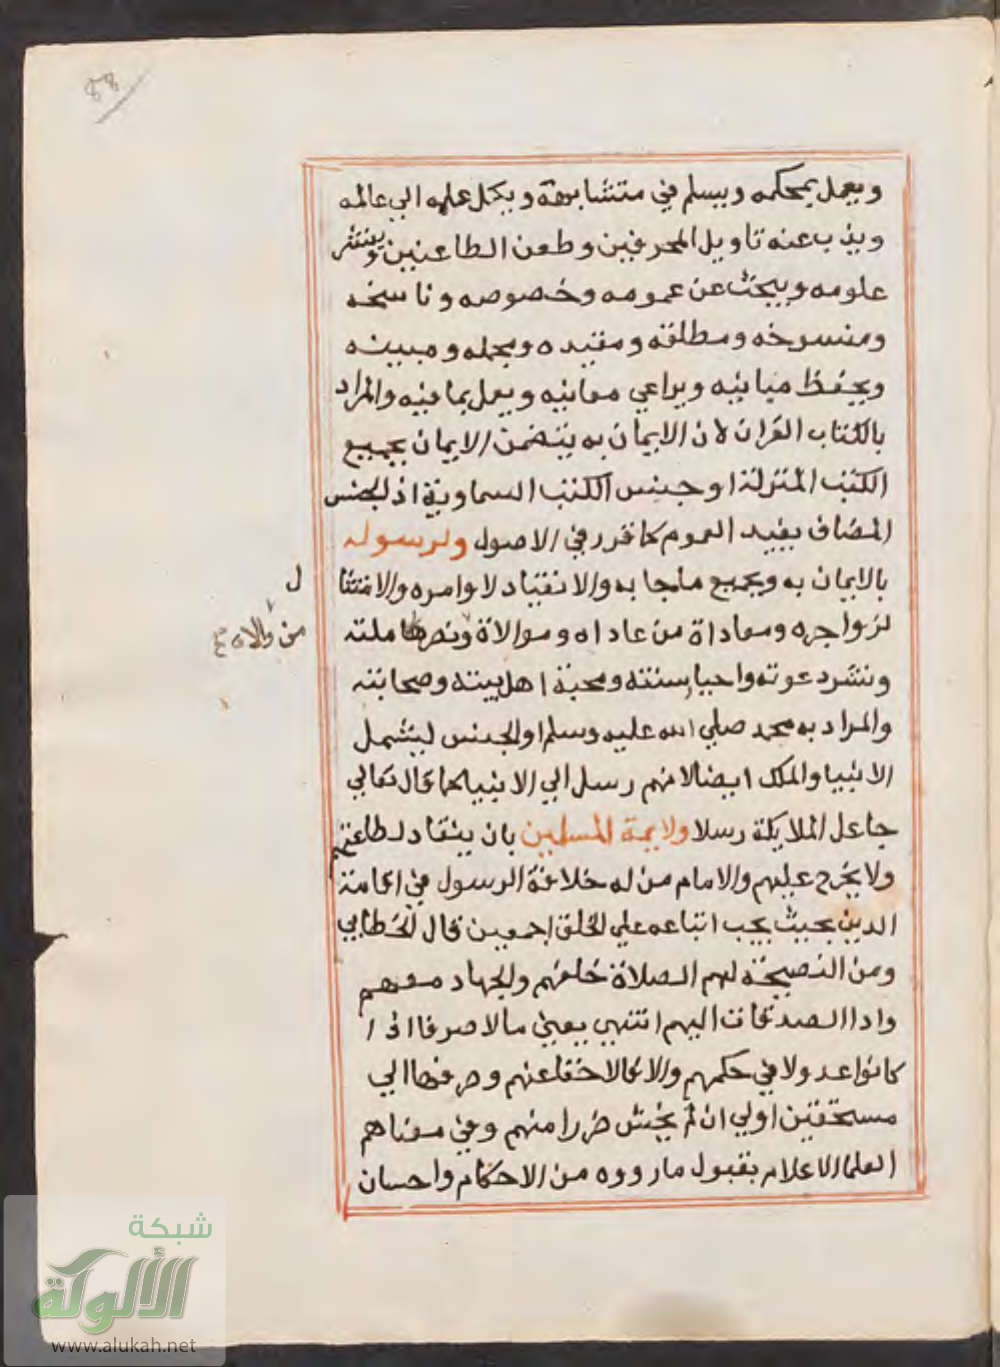 ٨٨
ويعمل بمحكمه ويسلم في متشابهه ويكل علمه الي عالمه
ويذب عنه تاويل المحرفين وطعن الطاعنين وينشر
علومه ويبحث عن عمومه وخصوصه وناسخه
ومنسوخه ومطلقه ومقيده ومجمله ومبينه
ويحفظ مبانيه ويراعي معانيه ويعمل بما فيه والمراد
بالكتاب القران لان الايمان به يتضمن الايمان بجميع
الكتب المنزلة او جنس الكتب السماوية اذ الجنس
المضاف يفيد العموم كما قرر في الاصول ولرسوله
بالايمان به وبجميع ما جا به والانقياد لاوامره والامتثا
ل
لزواجره ومعاداة من عاداه وموالاة ونصرها ملته
من والاه صح
ونشر دعوته واحيا سنته ومحبة اهل بيته وصحابته
والمراد به محمد صلي الله عليه وسلم او الجنس ليشمل
الانبيا والملك ايضا لانهم رسل الي الانبيا كما قال تعالي
جاعل الملايكة رسلا ولايمة المسلمين بان ينقاد لطاعتهم
ولا يخرج عليهم والامام من له خلافة الرسول في اقامة
الدين بحيث يجب اتباعه علي الخلق اجمعين قال الخطابي
ومن النصيحة لهم الصلاة خلفهم والجهاد معهم
وادا الصدقات اليهم انتهي يعني مالا صرفا اذا
كانوا عدولا في حكمهم والا فالاختفا عنهم وصرفها الي
مستحقين اولي ان لم يخش ضررا منهم وفي معناهم
العلما الاعلام بقبول ما رووه من الاحكام واحسان
شبكة
الألوكة
www.alukah.net